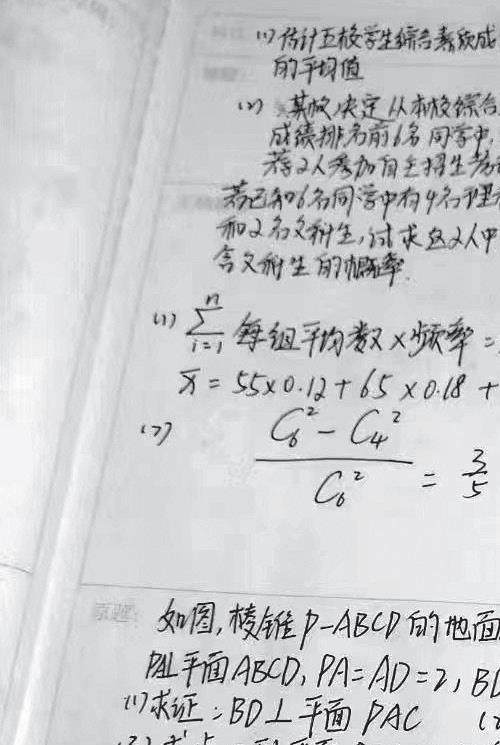 (1) 估计五校学生综合素质成
的平均值
(2) 某校决定从本校综合
成绩排名前6名同学中,
荐2人参加自主招生考试
若已知6名同学中有4名理科
和2名文科生,试求这2人中
含文科生的概率.
(1) \sum_{i=1}^{n} 每组平均数×频率=
x̄ = 55×0.12+65×0.18+
(2) \frac{C_6^2 - C_4^2}{C_6^2} = \frac{3}{5}
原题: 如图,棱锥P-ABCD的地面
PA⊥平面ABCD, PA=AD=2, BD
(1)求证:BD⊥平面PAC (2